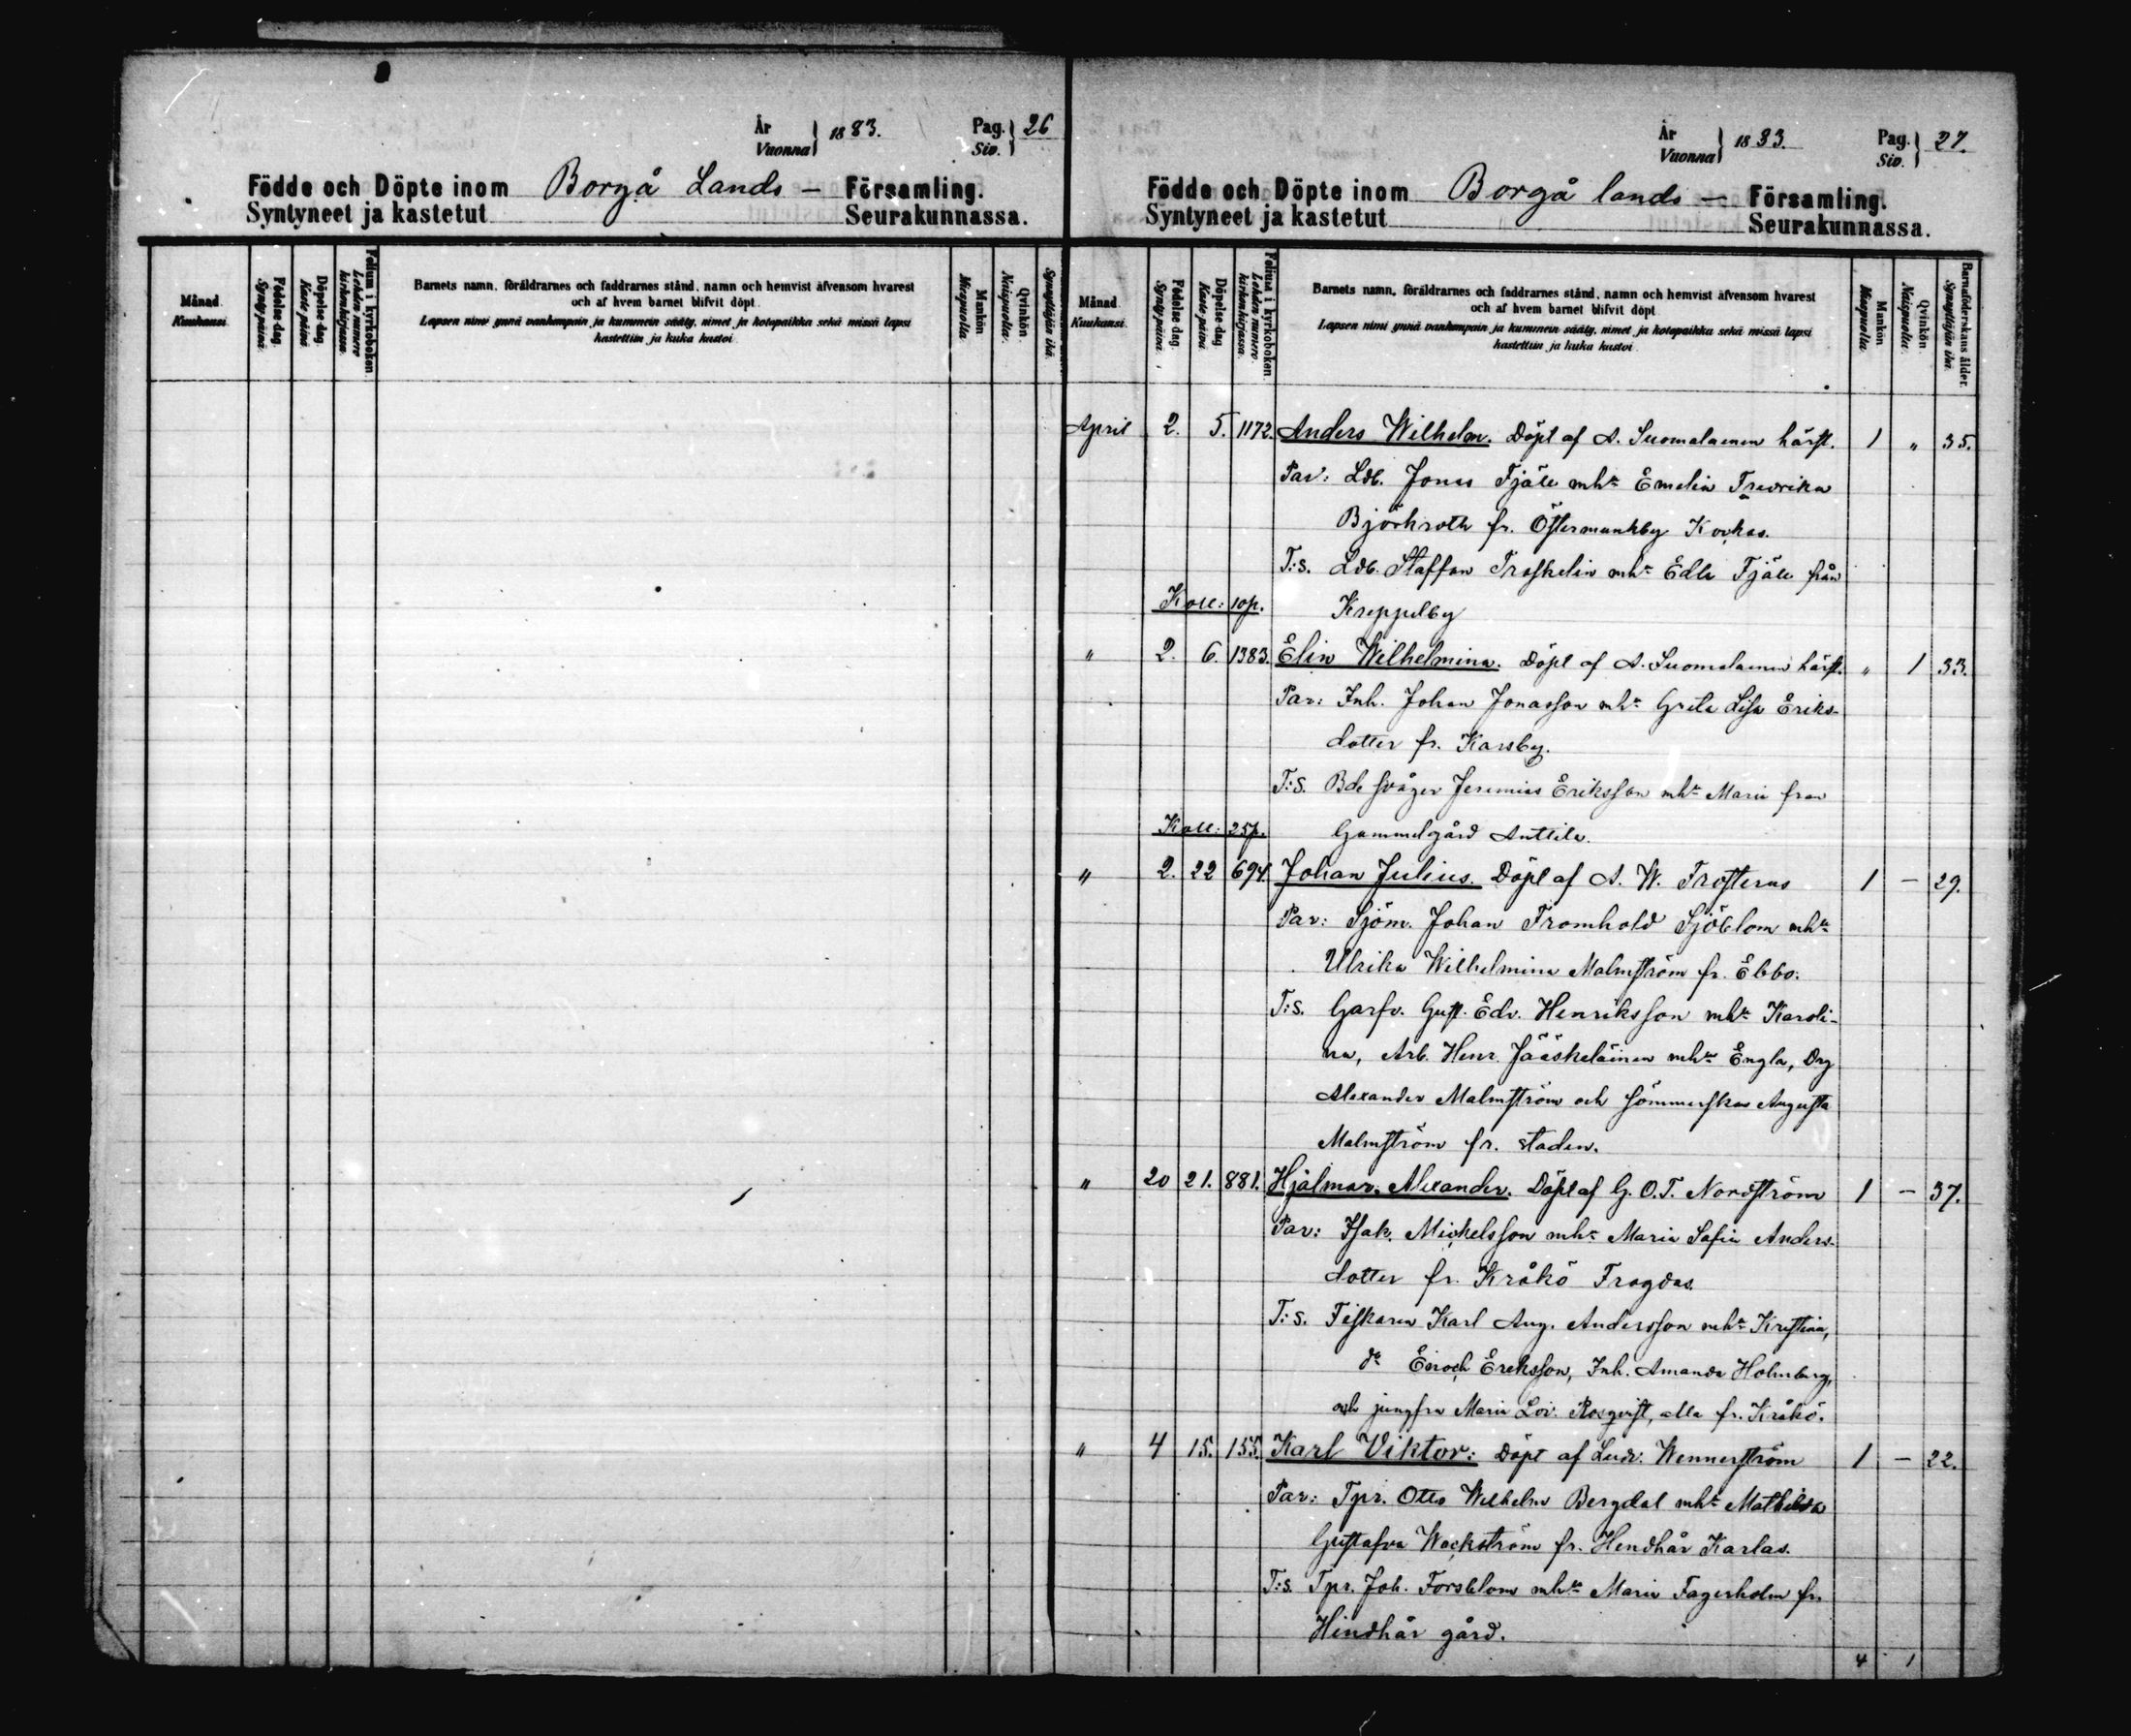 År
Vuonna
1883.
Pag.
Siv.
26
Födde och Döpte inom Borgå Lands – Församling.
Syntyneet ja kastetut Seurakunnassa.
Månad. Kuukausi.
Födelse-dag. Synty-päivä.
Döpelse-dag. Kaste-päivä.
Folium i kyrkoboken. Lehden numero kirkonkirjassa.
Barnets namn, föräldrarnes och faddrarnes stånd, namn och hemvist äfvensom hvarest
och af hvem barnet blifvit döpt.
Lapsen nimi ynnä vanhempain ja kummein sääty, nimet ja kotopaikka sekä missä lapsi
kastettiin ja kuka kastoi.
Mankön. Miespuolia.
Qvinkön. Naispuolia.
Synnyttäjän ikä.
År
Vuonna
1883.
Pag.
Siv.
27.
Födde och Döpte inom Borgå lands – Församling.
Syntyneet ja kastetut Seurakunnassa.
Månad. Kuukausi.
Födelse-dag. Synty-päivä.
Döpelse-dag. Kaste-päivä.
Folium i kyrkoboken. Lehden numero kirkonkirjassa.
Barnets namn, föräldrarnes och faddrarnes stånd, namn och hemvist äfvensom hvarest
och af hvem barnet blifvit döpt
Lapsen nimi ynnä vanhempain ja kummein sääty, nimet ja kotopaikka sekä missä lapsi
kastettiin ja kuka kastoi.
Mankön. Miespuolia.
Qvinkön. Naispuolia.
Barnaföderskans ålder. Synnyttäjän ikä.
April 2. 5. 1172. Anders Wilhelm. Döpt af A. Suomalainen härst. 1 " 35.
Par: Ldb. Jonas Fjäle mhu Emelia Fredrika
Björkroth fr. Östermunkby Korkas.
T:s. Ldb. Staffan Troskelin mhu Edla Fjäle från
Koll: 10p. Kreppelby
" 2. 6. 1383. Elin Wilhelmina. Döpt af A. Suomalainen härst. " 1 33.
Par: Inh. Johan Jonasson mhu Greta Lisa Eriks-
dotter fr. Karsby.
T:s. Bde svåger Jeremias Eriksson mhu Maria fran
Koll: 25p. Gammelgård Anttila.
" 2. 22 694. Johan Julius. Döpt af A. W. Frosterus 1 – 29.
Par: Sjöm. Johan Fromhold Sjöblom mhu
Ulrika Wilhelmina Malmström fr. Ebbo.
T:s. Garfv. Gust. Edv. Henriksson mhu Karoli-
na, Arb. Henr. Jääskeläinen mhu Engla, Drg
Alexander Malmström och sömmerskan Augusta
Malmström fr. staden.
" 20 21. 881. Hjalmar Alexander. Döpt af G. O. T. Nordström 1 – 37.
Par: Isak Mickelsson mhu Maria Sofia Anders-
dotter fr. Kråkö Fragdas.
T:s. Fiskaren Karl Aug. Andersson mhu Kristina,
do Enoch Ereksson, Inh. Amanda Holmberg,
och jungfru Maria Lov. Rosqvist, alla fr. Kråkö.
" 4 15. 155. Karl Viktor: Döpt af Ludv. Wennerström 1 – 22.
Par: Tpr. Otto Wilhelm Bergdal mhu Mathilda
Gustafva Wackström fr. Hendhår Karlas.
T:s. Tpr. Joh. Forsblom mhu Maria Fagerholm fr.
Hindhår gård.
4 1